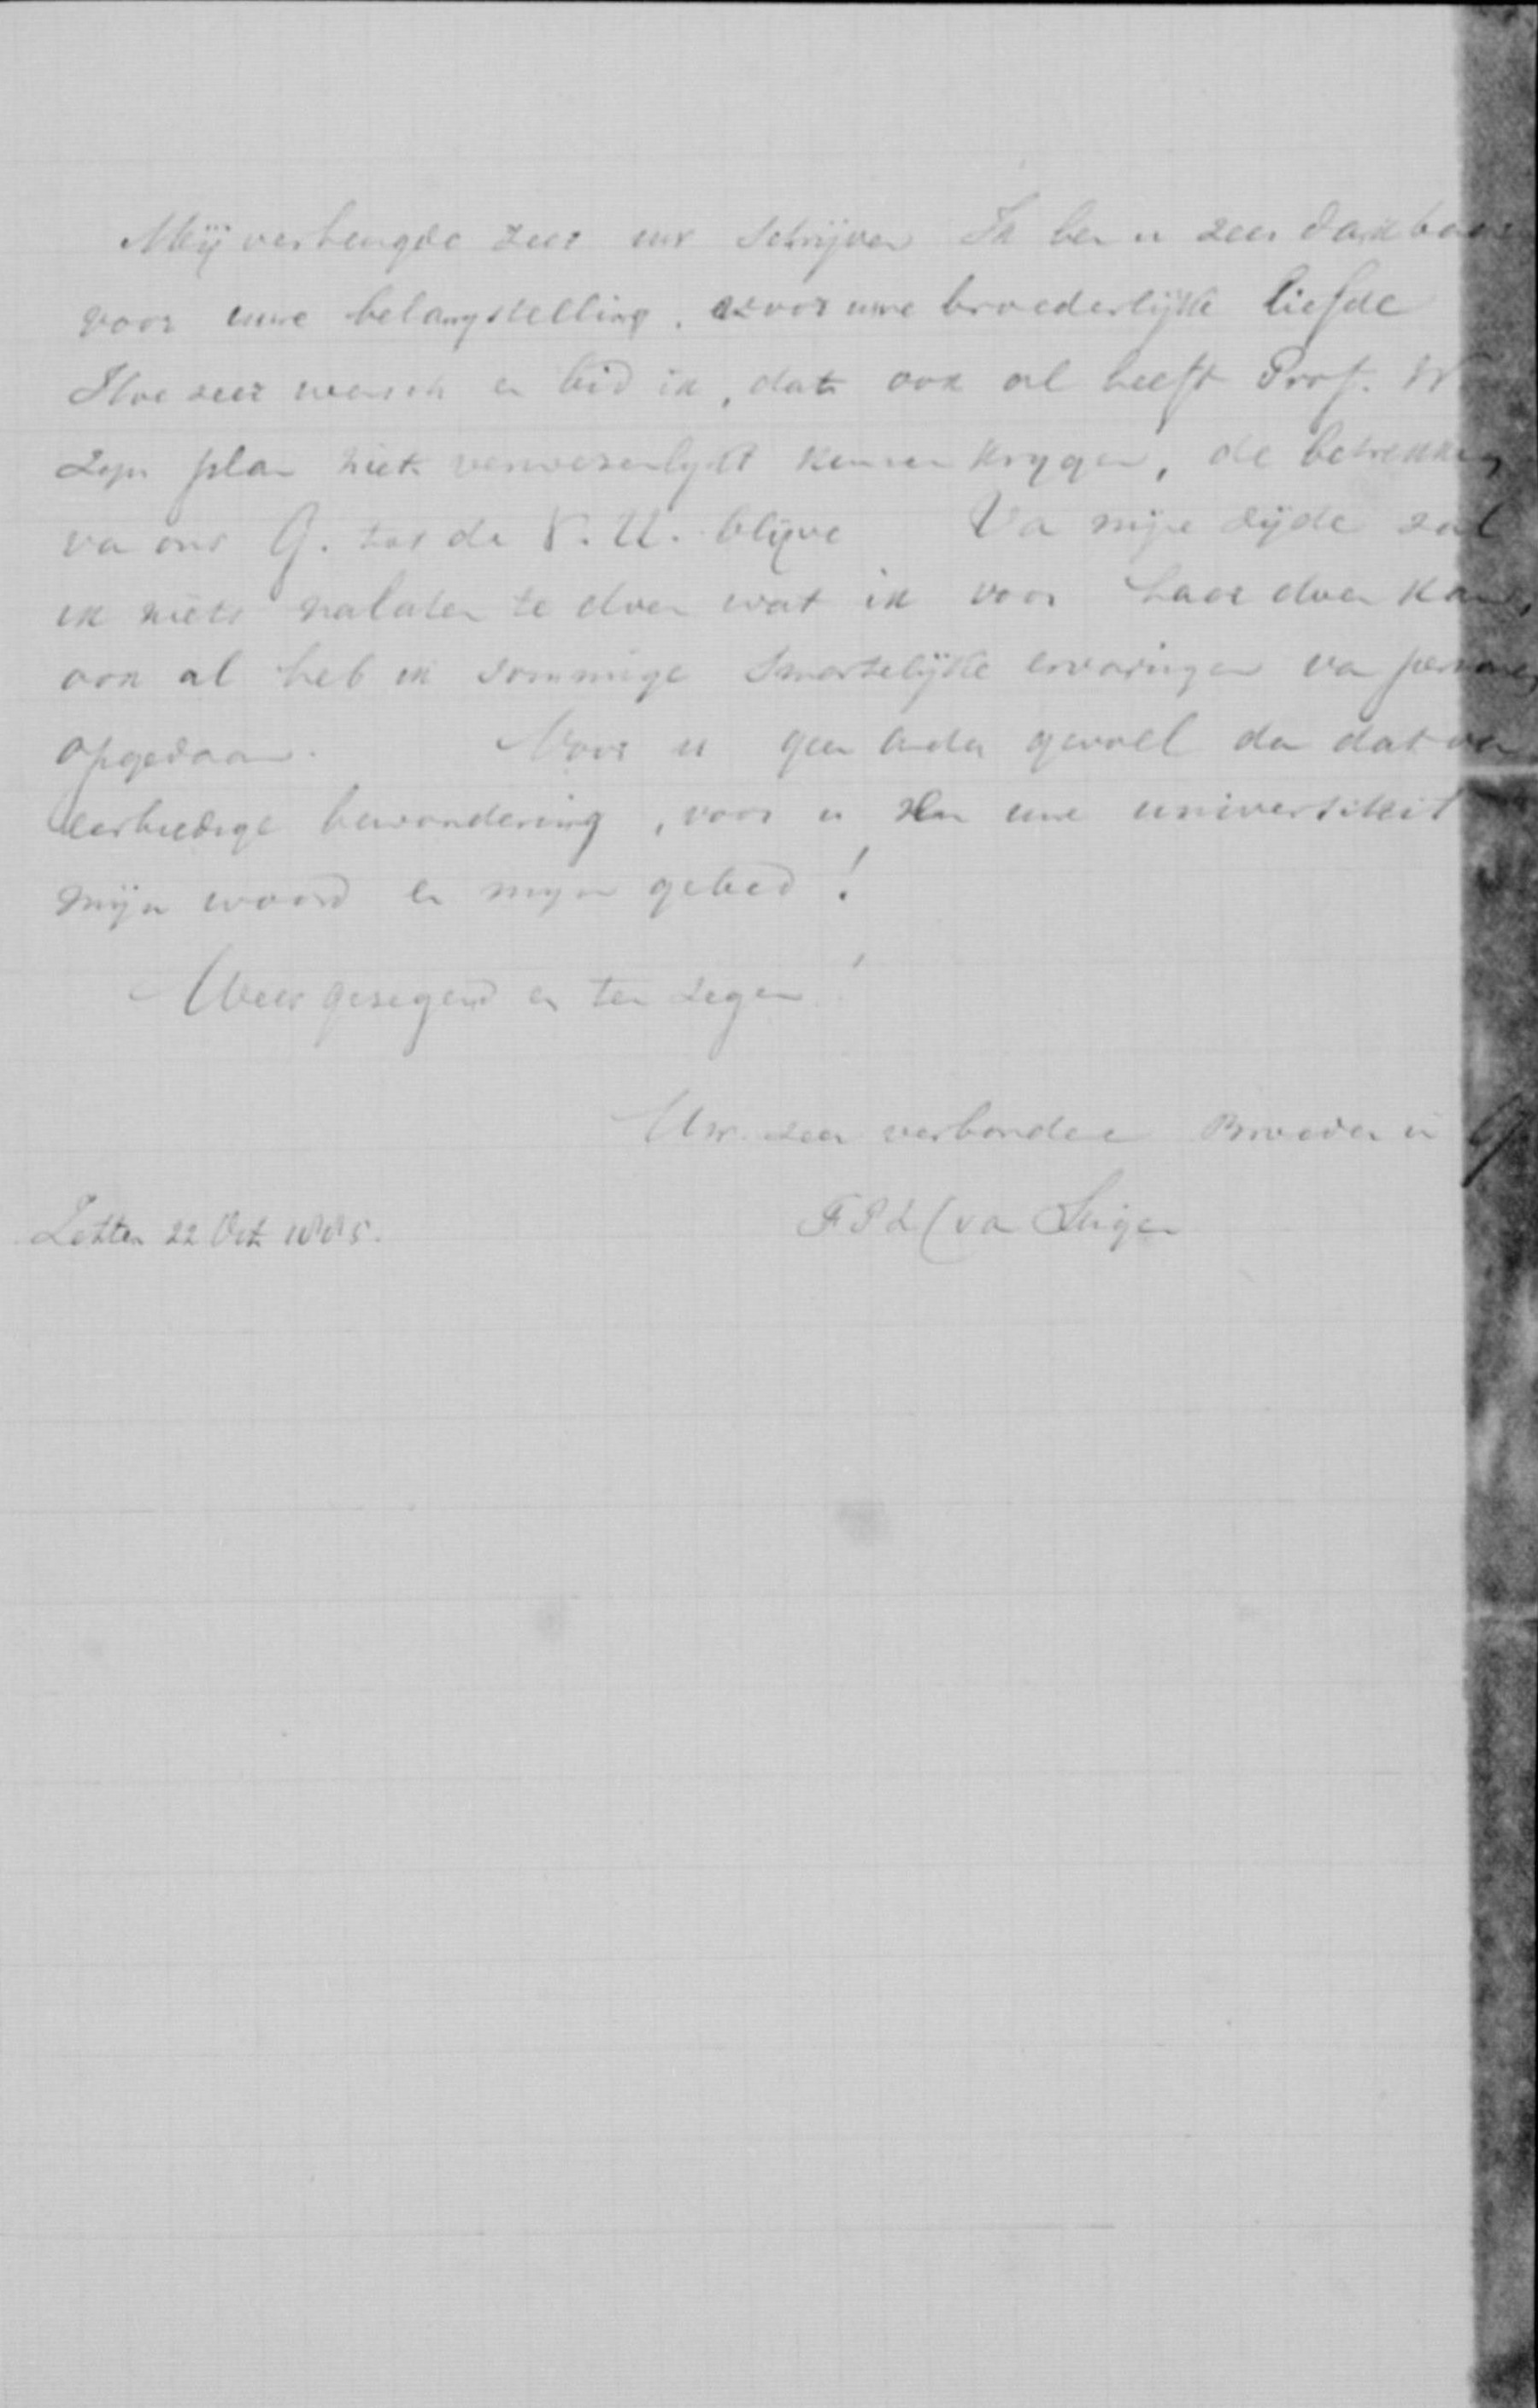 Mij verheugde zeer uw schrijven Ik ben u zeer dankbaar
voor uwe belangstelling. voor uwe broederlijke liefde
Hoe zeer wensch en bid ik, dat ook al heeft Prof. W
zijn plan niet verwezenlykt kunnen krygen, de betrekking
van ons G. tot de V. U. blijve Van mijne zijde zal
ik niets nalaten te doen wat ik voor haar doen kan,
ook al heb ik sommige smartelijke ervaringen van personen
opgedaan. Voor u geen ander gevoel dan dat van
eerbiedige bewondering, voor u en uwe universiteit
mijn woord en mijn gebed!
Wees gezegend en ten zegen!
Uw zeer verbonden Broeder in
Zetten 22 Oct 1885.
F P L C van Lingen